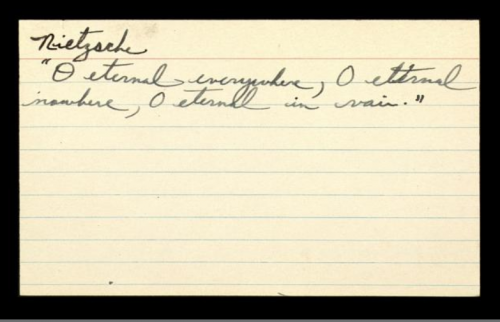 Nietzsche
"O eternal everywhere, O eternal
nowhere, O eternal in vain."